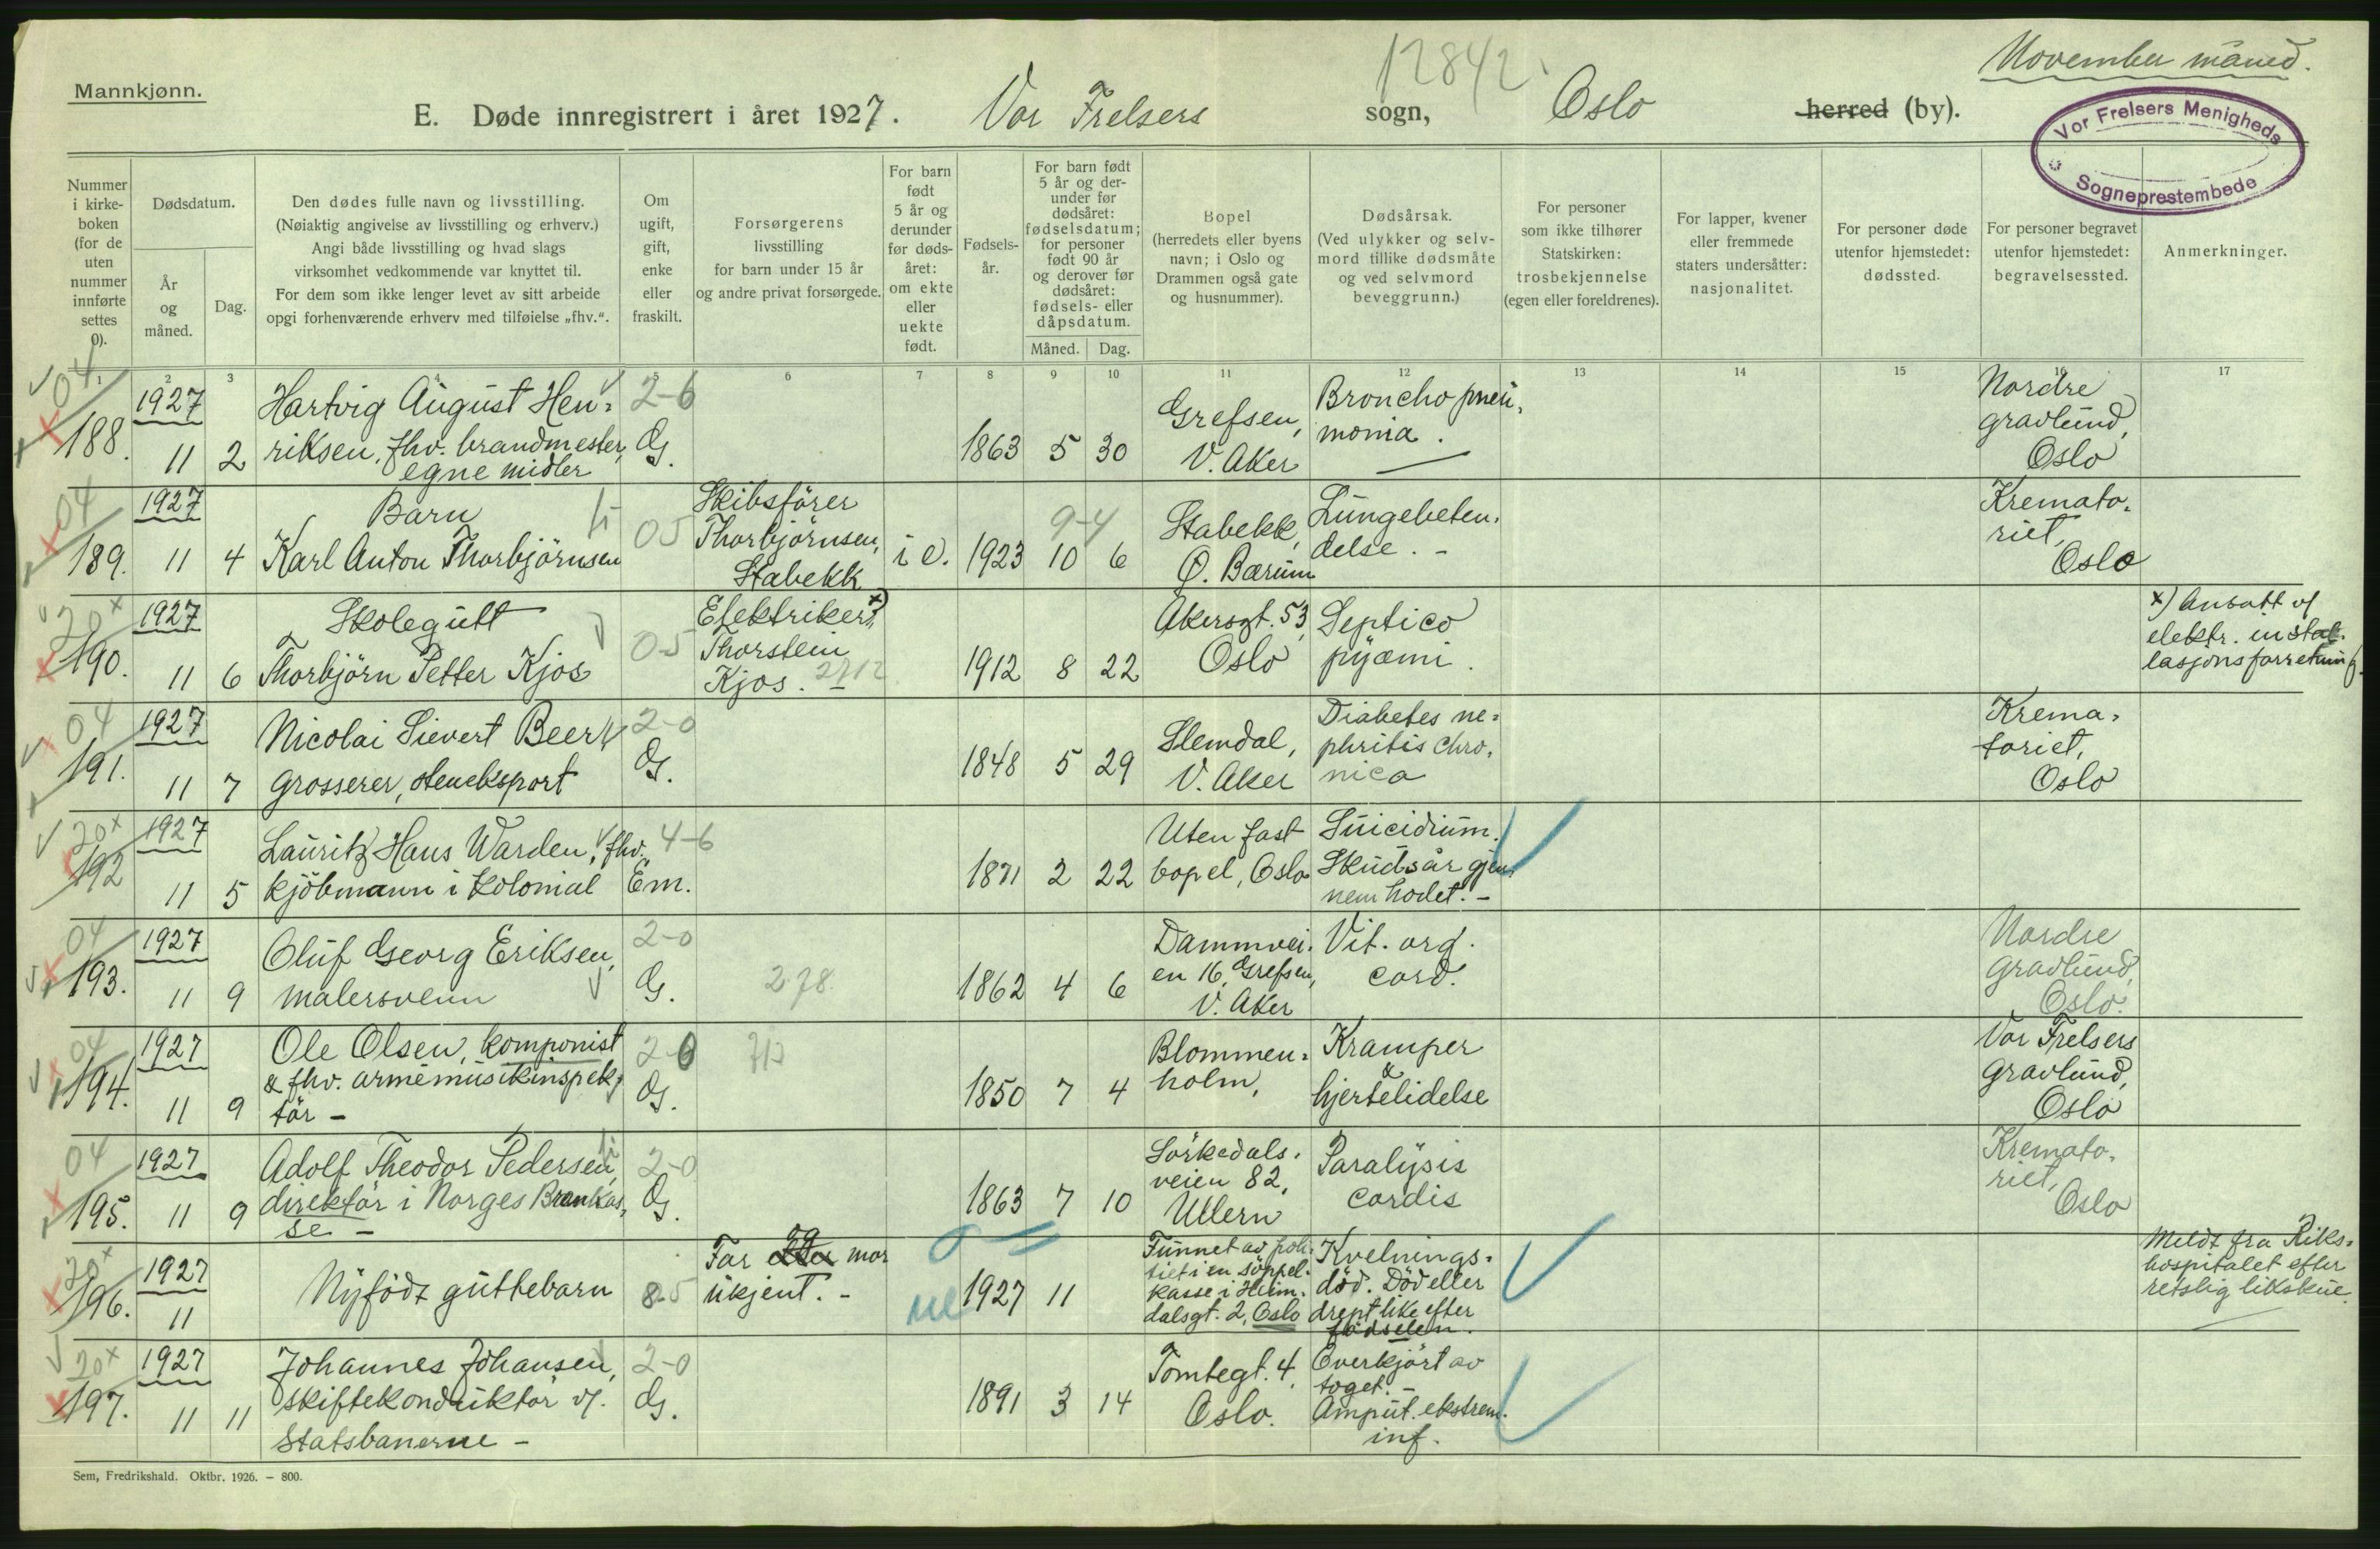 November måned.
12842.
Mannkjønn.
E. Døde innregistrert i året 1927. Vor Frelsers sogn, Oslo herred (by).
Vor Frelsers Menigheds
Sogneprestembede
Nummer
i kirke-
boken
(for de
uten
nummer
innførte
settes
0).
Dødsdatum.
År
og
måned.
Dag.
Den dødes fulle navn og livsstilling.
(Nøiaktig angivelse av livsstilling og erhverv.)
Angi både livsstilling og hvad slags
virksomhet vedkommende var knyttet til.
For dem som ikke lenger levet av sitt arbeide
opgi forhenværende erhverv med tilføielse „fhv.“.
Om
ugift,
gift,
enke
eller
fraskilt.
Forsørgerens
livsstilling
for barn under 15 år
og andre privat forsørgede.
For barn
født
5 år og
derunder
før døds-
året:
om ekte
eller
uekte
født.
Fødsels-
år.
For barn født
5 år og der-
under før
dødsåret:
fødselsdatum;
for personer
født 90 år
og derover før
dødsåret:
fødsels- eller
dåpsdatum.
Måned. Dag.
Bopel
(herredets eller byens
navn; i Oslo og
Drammen også gate
og husnummer).
Dødsårsak.
(Ved ulykker og selv-
mord tillike dødsmåte
og ved selvmord
beveggrunn.)
For personer
som ikke tilhører
Statskirken:
trosbekjennelse
(egen eller foreldrenes).
For lapper, kvener
eller fremmede
staters undersåtter:
nasjonalitet.
For personer døde
utenfor hjemstedet:
dødssted.
For personer begravet
utenfor hjemstedet:
begravelsessted.
Anmerkninger.
1 2 3 4 5 6 7 8 9 10 11 12 13 14 15 16 17
04
188.
1927
11 2
Hartvig August Hen-
riksen, fhv. brandmester,
egne midler
2-6
G.
1863 5 30
Grefsen,
V. Aker
Bronchopneu-
monia.
Nordre
gravlund,
Oslo
04
189.
1927
11 4
Barn
Karl Anton Thorbjørnsen
05
Skibsfører
Thorbjørnsen,
Stabekk
i e.
1923
9-4
10 6
Stabekk,
Ø. Bærum
Lungebeten-
delse. -
Kremato-
riet,
Oslo
20x
190.
1927
11 6
Skolegutt
Thorbjørn Petter Kjos
05
Elektriker x)
Thorstein
Kjos. 2712
1912 8 22
Akersgt. 53,
Oslo
Septico
pyæmi.
x) Ansatt v/
elektr. instal-
lasjonsforretning.
04
191.
1927
11 7
Nicolai Sievert Beer,
grosserer, steneksport
2-0
G.
1848 5 29
Slemdal,
V. Aker
Diabetes ne-
phritis chro-
nica
Krema-
toriet,
Oslo
20x
192
1927
11 5
Lauritz Hans Warden, fhv.
kjøbmann i kolonial
4-6
Em.
1871 2 22
Uten fast
bopel, Oslo
Suicidium.
Skudsår gjen-
nem hodet. -
04
193.
1927
11 9
Oluf Georg Eriksen,
malersvenn
2-0
G.
278.
1862 4 6
Dammvei-
en 16, Grefsen,
V. Aker
Vit. org.
cord.
Nordre
gravlund,
Oslo.
04
194.
1927
11 9
Ole Olsen, komponist
& fhv. armémusikinspek-
tør -
2-6
G.
1850 7 4
Blommen-
holm,
Kramper
&
hjertelidelse
Vor Frelsers
gravlund,
Oslo
04
195.
1927
11 9
Adolf Theodor Pedersen,
direktør i Norges Brankas-
se -
2-0
G.
1863 7 10
Sørkedals-
veien 82,
Ullern
Paralysis
cordis
Kremato-
riet,
Oslo
20x
196.
1927
11
Nyfødt guttebarn
8-5
Far og mor
ukjent. -
1927 11
Funnet av poli-
tiet i en søppel-
kasse i Heim-
dalsgt. 2, Oslo
Kvelnings-
død. Død eller
drept like efter
fødselen.
Meldt fra Riks-
hospitalet efter
retslig likskue.
20x
197.
1927
11 11
Johannes Johansen,
skiftekonduktør v/
Statsbanerne -
2-0
G.
1891 3 14
Tomtegt. 4,
Oslo.
Overkjørt av
toget. -
Amput. ekstrem.
inf.
Sem, Fredrikshald. Oktbr. 1926. - 800.